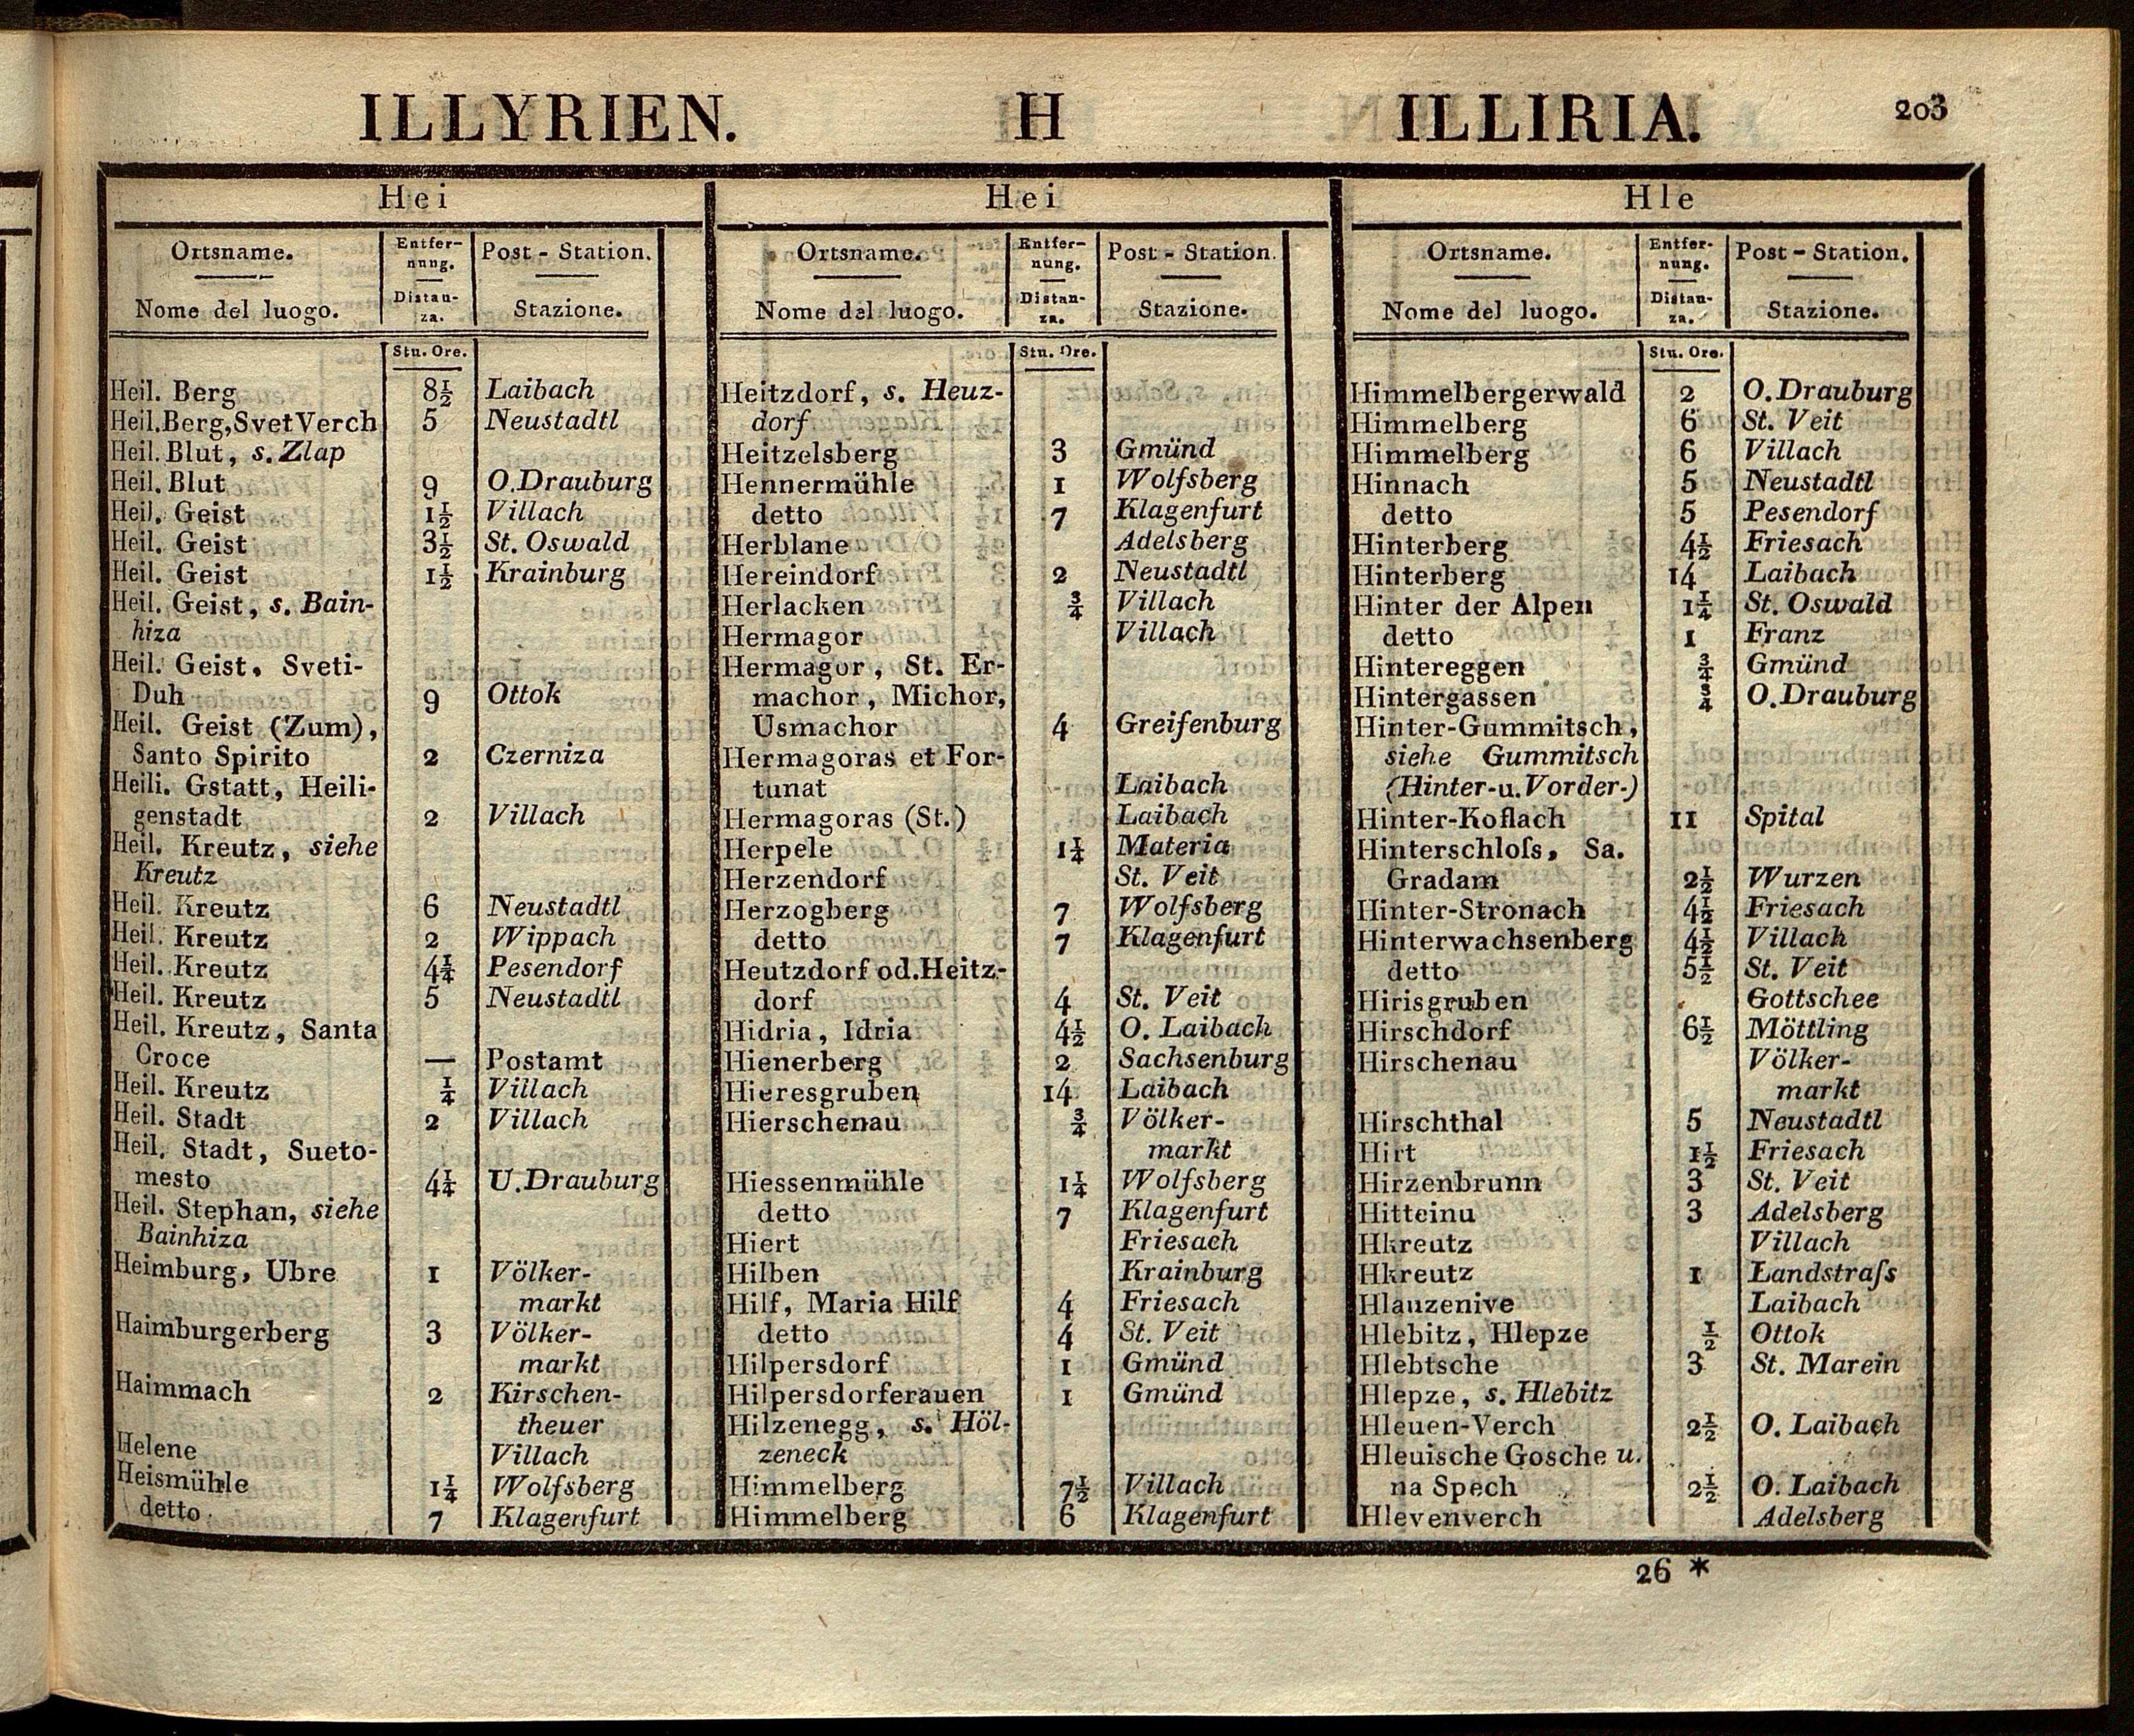 ILLYRIEN. H ILLIRIA. 203
Hei
Ortsname. Entfer- Post - Station.
nung.
Nome del luogo. Distan- Stazione.
za.
Stu. Ore.
Heil. Berg 8½ Laibach
Heil. Berg, Svet Verch 5 Neustadtl
Heil. Blut, s. Zlap
Heil. Blut 9 O. Drauburg
Heil. Geist 1½ Villach
Heil. Geist 3½ St. Oswald
Heil. Geist 1½ Krainburg
Heil. Geist, s. Bain-
hiza
Heil. Geist. Sveti-
Duh 9 Ottok
Heil. Geist (Zum),
Santo Spirito 2 Czerniza
Heili. Gstatt, Heili-
genstadt 2 Villach
Heil. Kreutz, siehe
Kreutz
Heil. Kreutz 6 Neustadtl
Heil. Kreutz 2 Wippach
Heil. Kreutz 4¼ Pesendorf
Heil. Kreutz 5 Neustadtl
Heil. Kreutz, Santa
Croce — Postamt
Heil. Kreutz ¼ Villach
Heil. Stadt 2 Villach
Heil. Stadt, Sueto-
mesto 4¼ U. Drauburg
Heil. Stephan, siehe
Bainhiza
Heimburg, Ubre 1 Völker-
markt
Haimburgerberg 3 Völker-
markt
Haimmach 2 Kirschen-
theuer
Helene Villach
Heismühle 1¼ Wolfsberg
detto 7 Klagenfurt
Hei
Ortsname. Entfer- Post - Station.
nung.
Nome del luogo. Distan- Stazione.
za.
Stu. Ore.
Heitzdorf, s. Heuz-
dorf
Heitzelsberg 3 Gmünd
Hennermühle 1 Wolfsberg
detto 7 Klagenfurt
Herblane Adelsberg
Hereindorf 2 Neustadtl
Herlacken ¾ Villach
Hermagor Villach
Hermagor, St. Er-
machor, Michor,
Usmachor 4 Greifenburg
Hermagoras et For-
tunat Laibach
Hermagoras (St.) Laibach
Herpele 1¼ Materia
Herzendorf St. Veit
Herzogberg 7 Wolfsberg
detto 7 Klagenfurt
Heutzdorf od. Heitz-
dorf 4 St. Veit
Hidria, Idria 4½ O. Laibach
Hienerberg 2 Sachsenburg
Hieresgruben 14 Laibach
Hierschenau ¾ Völker-
markt
Hiessenmühle 1¼ Wolfsberg
detto 7 Klagenfurt
Hiert Friesach
Hilben Krainburg
Hilf, Maria Hilf 4 Friesach
detto 4 St. Veit
Hilpersdorf 1 Gmünd
Hilpersdorferauen 1 Gmünd
Hilzenegg, s. Höl-
zeneck
Himmelberg 7½ Villach
Himmelberg 6 Klagenfurt
Hle
Ortsname. Entfer- Post - Station.
nung.
Nome del luogo. Distan- Stazione.
za.
Stu. Ore.
Himmelbergerwald 2 O. Drauburg
Himmelberg 6 St. Veit
Himmelberg 6 Villach
Hinnach 5 Neustadtl
detto 5 Pesendorf
Hinterberg 4½ Friesach
Hinterberg 14 Laibach
Hinter der Alpen 1¼ St. Oswald
detto 1 Franz
Hintereggen ¾ Gmünd
Hintergassen ¾ O. Drauburg
Hinter-Gummitsch,
siehe Gummitsch
(Hinter-u. Vorder-)
Hinter-Koflach 11 Spital
Hinterschloſs, Sa.
Gradam 2½ Wurzen
Hinter-Stronach 4½ Friesach
Hinterwachsenberg 4½ Villach
detto 5½ St. Veit
Hirisgruben Gottschee
Hirschdorf 6½ Möttling
Hirschenau Völker-
markt
Hirschthal 5 Neustadtl
Hirt 1½ Friesach
Hirzenbrunn 3 St. Veit
Hitteinu 3 Adelsberg
Hkreutz Villach
Hkreutz 1 Landstraſs
Hlauzenive Laibach
Hlebitz, Hlepze ½ Ottok
Hlebtsche 3 St. Marein
Hlepze, s. Hlebitz
Hleuen-Verch 2½ O. Laibach
Hleuische Gosche u.
na Spech 2½ O. Laibach
Hlevenverch Adelsberg
26 *